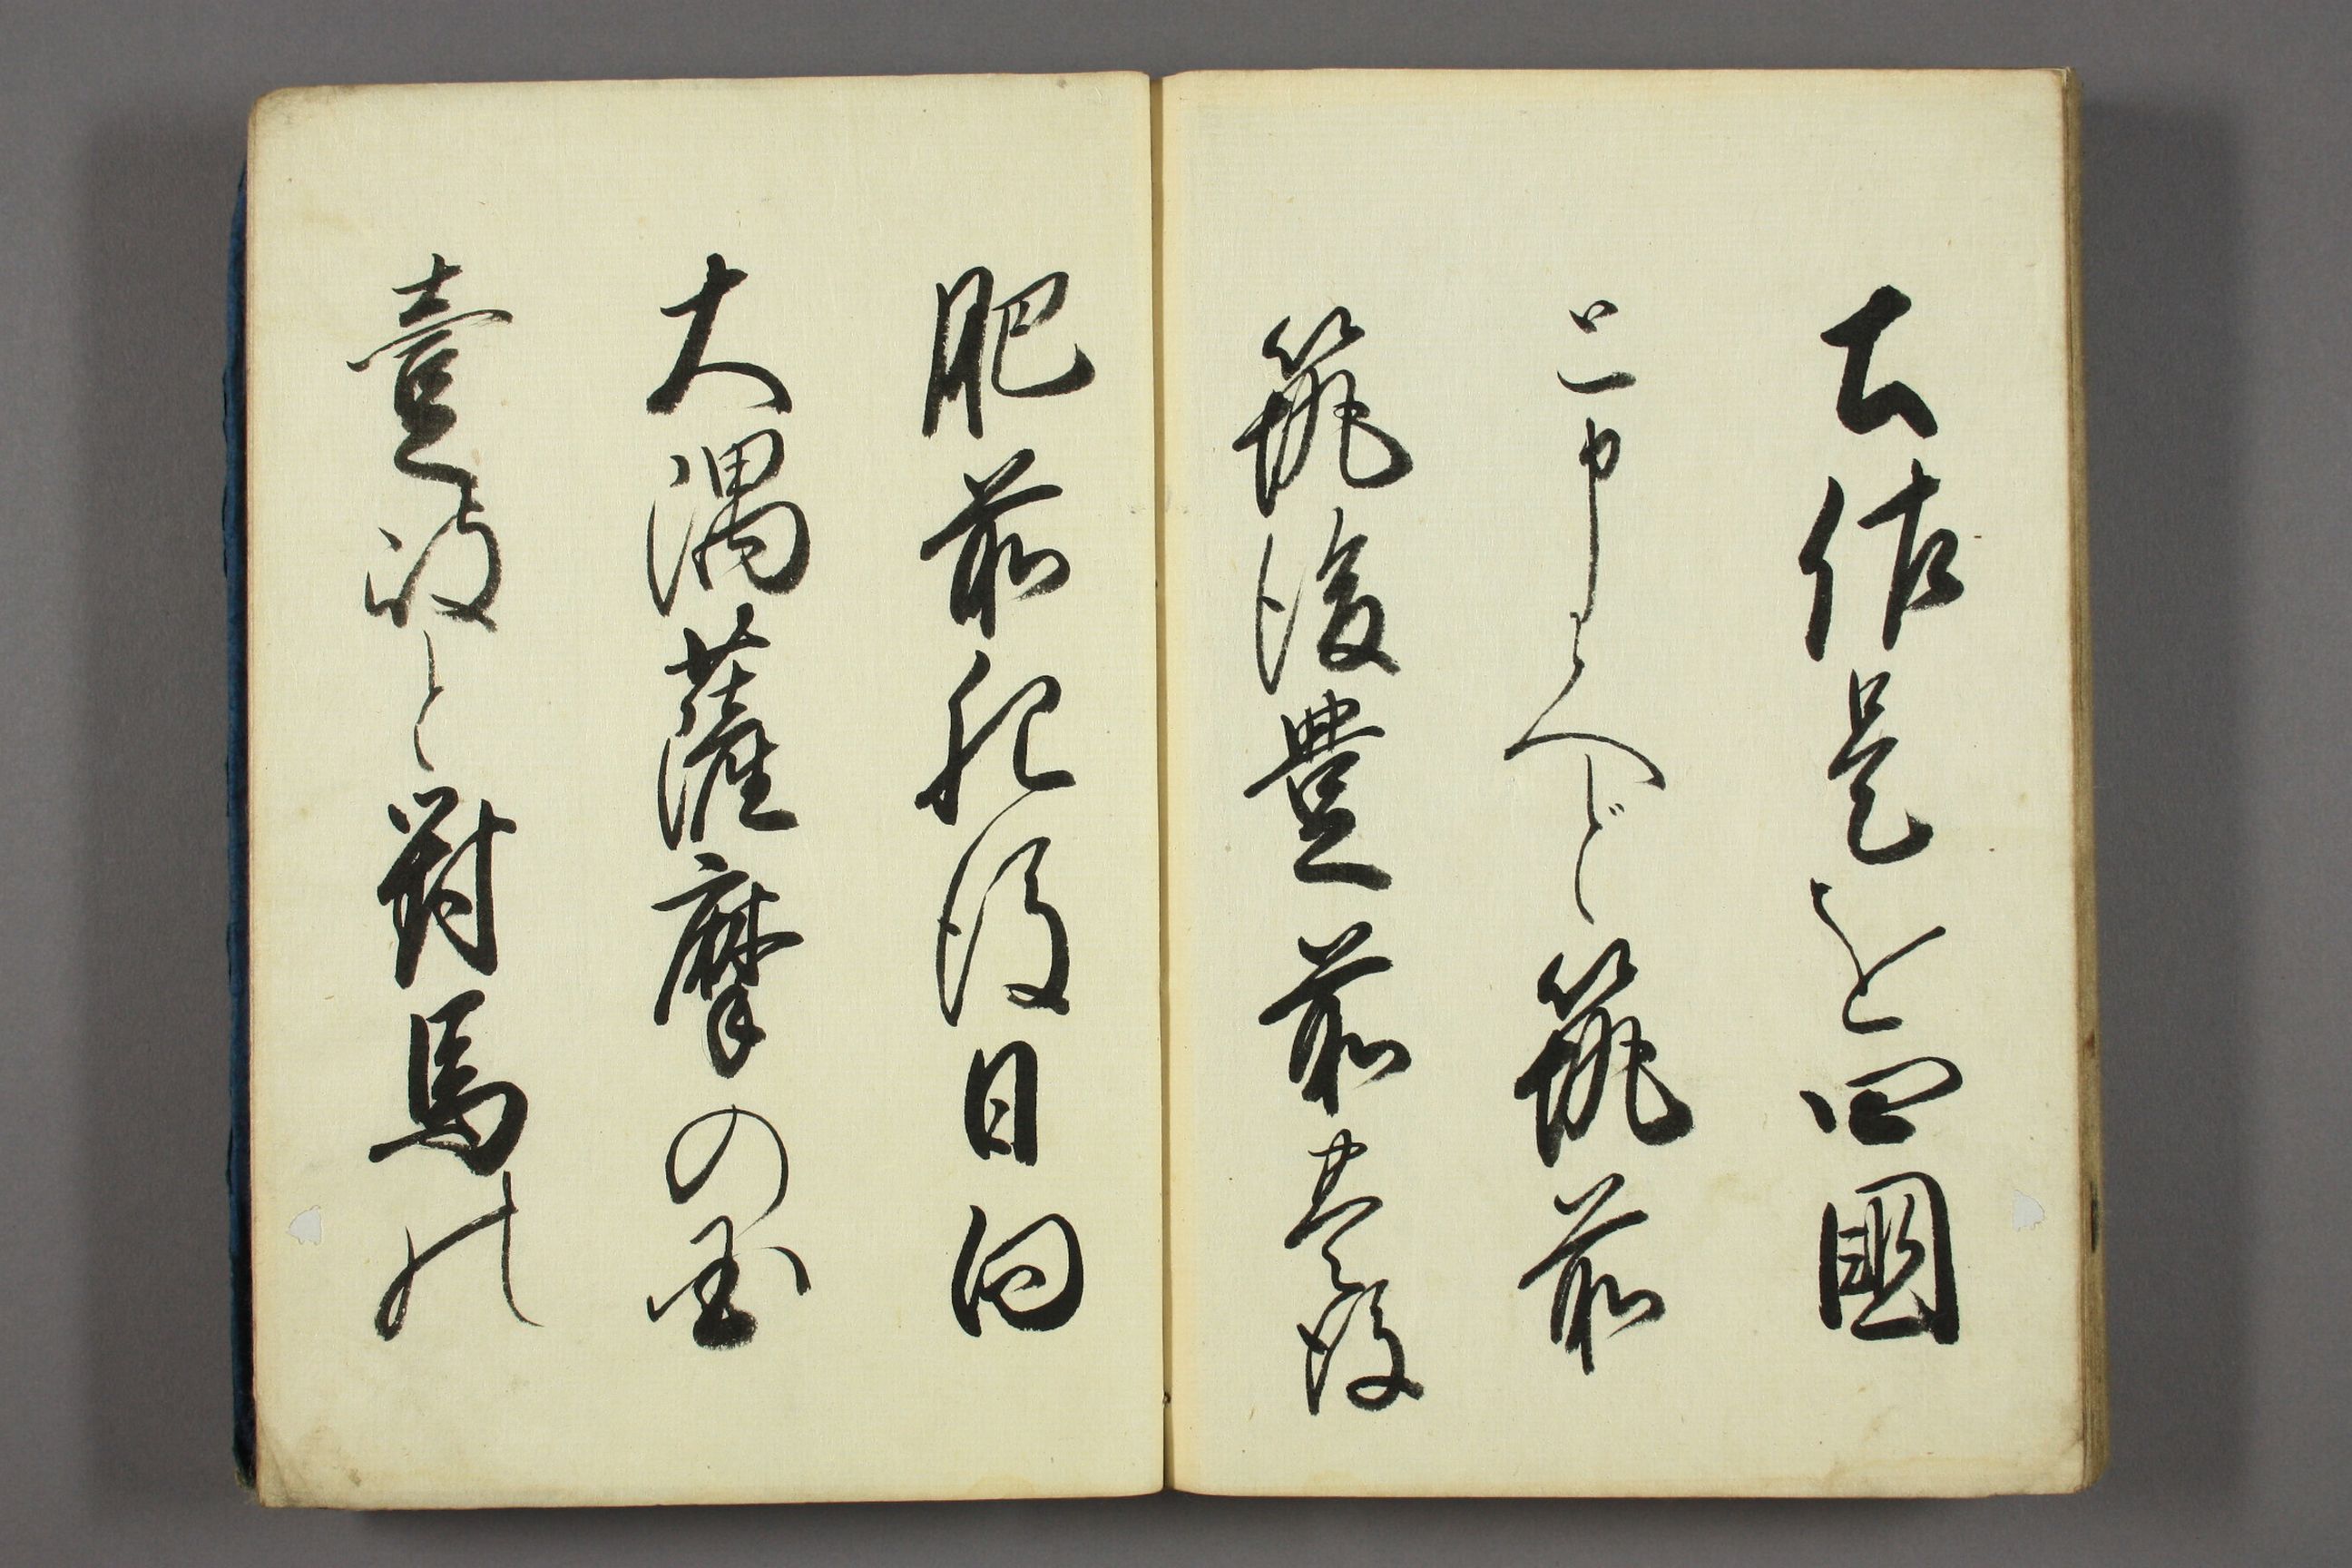 土佐是を四國
と申候へど筑前
筑後豊前豊後
肥前肥後日向
大隅薩摩の国
壹岐と對馬の